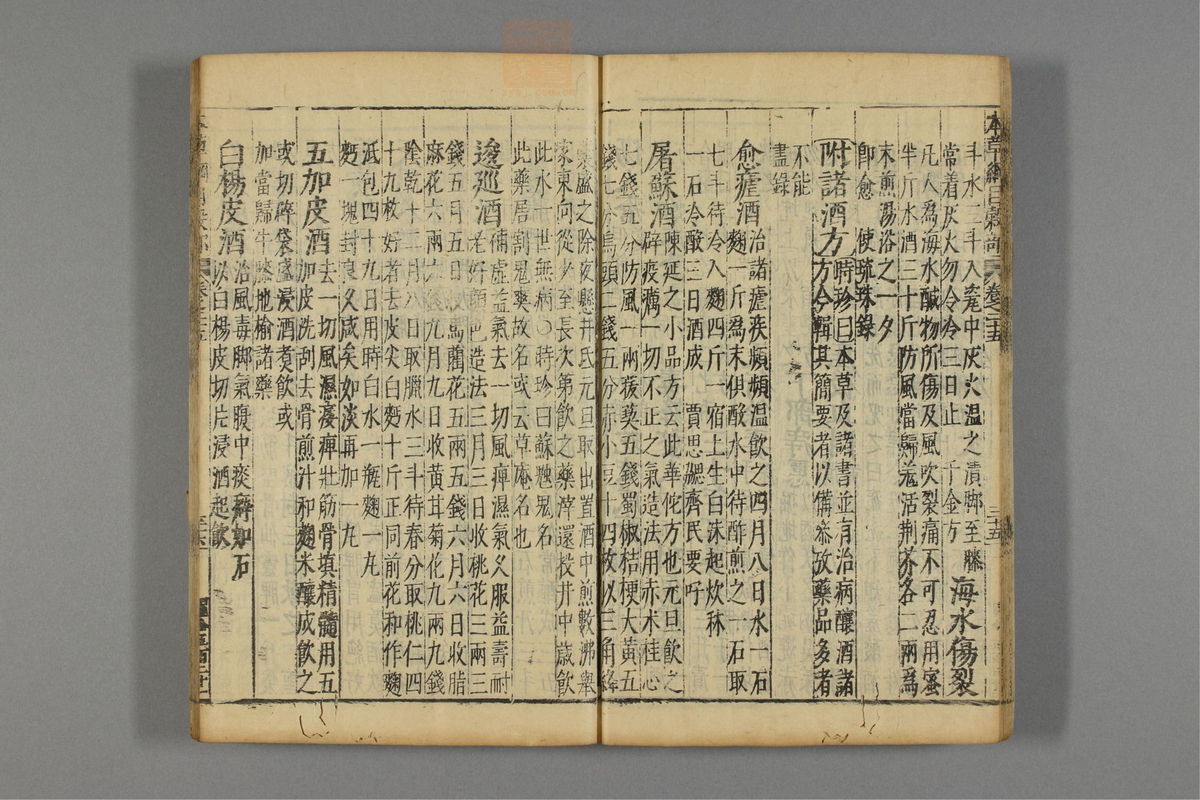 斗水三斗入竈中灰火温之漬脚至膝
常着灰火勿令冷三日止　千金方　海水傷裂
凡人爲海水鹹物所傷及風吹裂痛不可忍用蜜
半斤水酒三十斤防風當歸羌活荆芥各二兩爲
末煎湯浴之一夕
卽愈　使琉球錄
附諸酒方　時珍曰本草及諸書並有治病釀酒諸
方今輯其簡要者以備參攷藥品多者
不能
盡錄
愈瘧酒　治諸瘧疾頻頻温飮之四月八日水一石
麴一斤爲末俱酘水中待酢煎之一石取
七斗待冷入麴四斤一宿上生白沫起炊秫
一石冷酘三日酒成　賈思勰齊民要
屠蘇酒　陳延之小品方云此華佗方也元旦飮之
辟疫癘一切不正之氣造法用赤木桂心
七錢五分防風一兩菝葜五錢蜀椒桔梗大黄五
錢七分烏頭二錢五分赤小豆十四枚以三角絳
囊盛之除夜懸井底元旦取出置酒中煎數沸舉
家東向從少至長次第飮之藥滓還投井中歲飮
此水一世無病〇時珍曰蘇魃鬼名
此藥屠割鬼爽故名或云草庵名也
逡巡酒　補虚益氣去一切風痺濕氣久服益壽耐
老好顔色造法三月三日收桃花三兩三
錢五月五日收馬藺花五兩五錢六月六日收脂
麻花六兩六錢九月九日收黄甘菊花九兩九錢
陰乾十二月八日取臘水三斗待春分取桃仁四
十九枚好者去皮尖白麪十斤正同前花和作麴
紙包四十九日用時白水一瓶麴一丸
麪一塊封良久成矣如淡再加一丸
五加皮酒　去一切風濕痿痺壯筋骨填精髓用五
加皮洗刮去骨煎汁和麴米釀成飮之
或切碎袋盛浸酒煮飮或
加當歸牛膝地榆諸藥
白楊皮酒　治風毒脚氣腹中痰癖如石
以白楊皮切片浸酒起飮